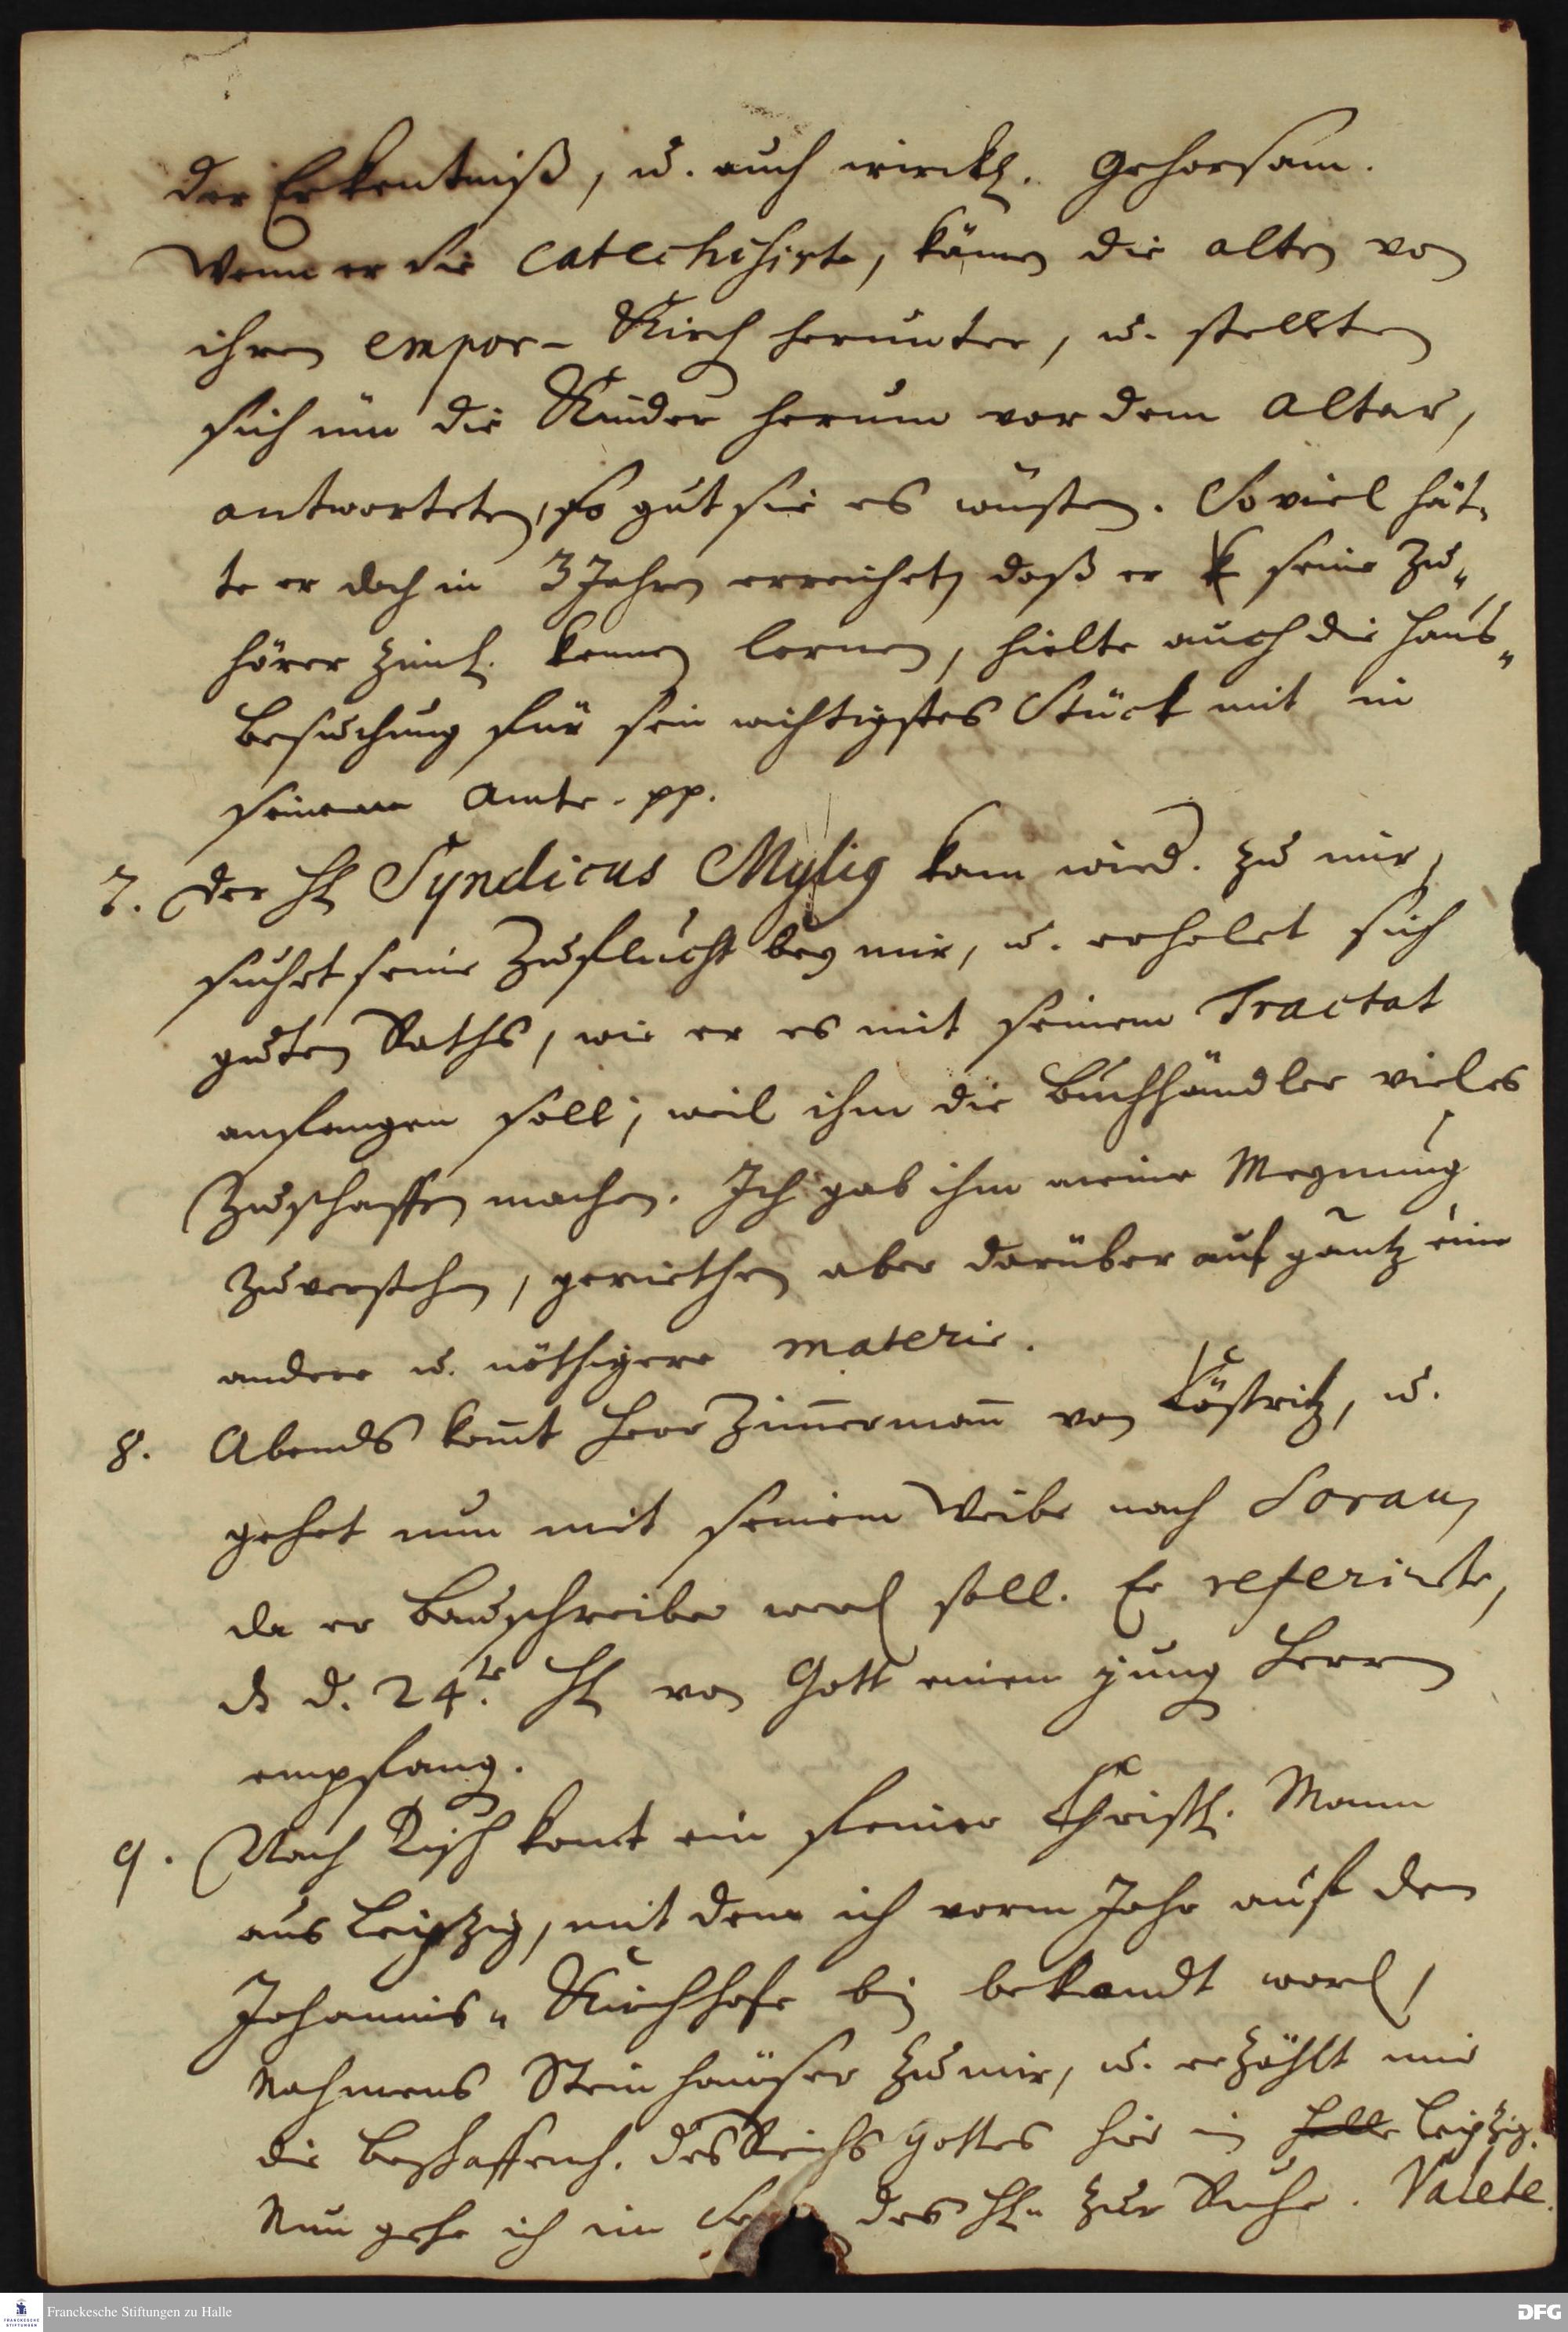 der Erkentniß, u. auch wirckl. Gehorsam.
Wenn er sie catechisirte, kämen die alten von
ihren empor- Kirch herunter, u. stellten
sich um die Kinder herum vor dem Altar,
antworteten, so gut sie es wüsten. So viel hät-
te er doch in 3 Jahren erreichet, daß er seine Zu-
hörer ziml. kennen lernen, hielte auch die Haus-
Besuchung für sein wichtigstes Stück mit in
seinem Amte. pp.
7. Der H. Syndicus Mylig kam wied. zu mir,
suchet seine Zuflucht bey mir, u. erholet sich
guten Raths, wie er es mit seinem Tractat
anfangen soll, weil ihm die Buchhändler vieles
Zuschaffen machen. Ich gab ihm meine Meynung
zuverstehen, geriethen aber darüber auf gantz eine
andere u. nöthigere materie.
8. Abends komt Herr Zimmermann von Köstritz, u.
gehet nun mit seinem Weibe nach Sorau,
da er Bauschreiber werd soll. Er referirte,
d. 24. von Gott einen jung Herrn
empfang.
9. Nach Tisch komt ein feiner Christl. Mann
aus Leipzig, mit dem ich vorm Jahr auf den
Johannis- Kirchhofe bin bekandt word,
Nahmens Steinhäuser zu mir, u. erzählt mir
die Beschaffenh. des Reichs Gottes hier in Halle Leipzig.
Nun gehe ich im des H. zur Ruhe. Valete.
Franckesche Stiftungen zu Halle
DFG